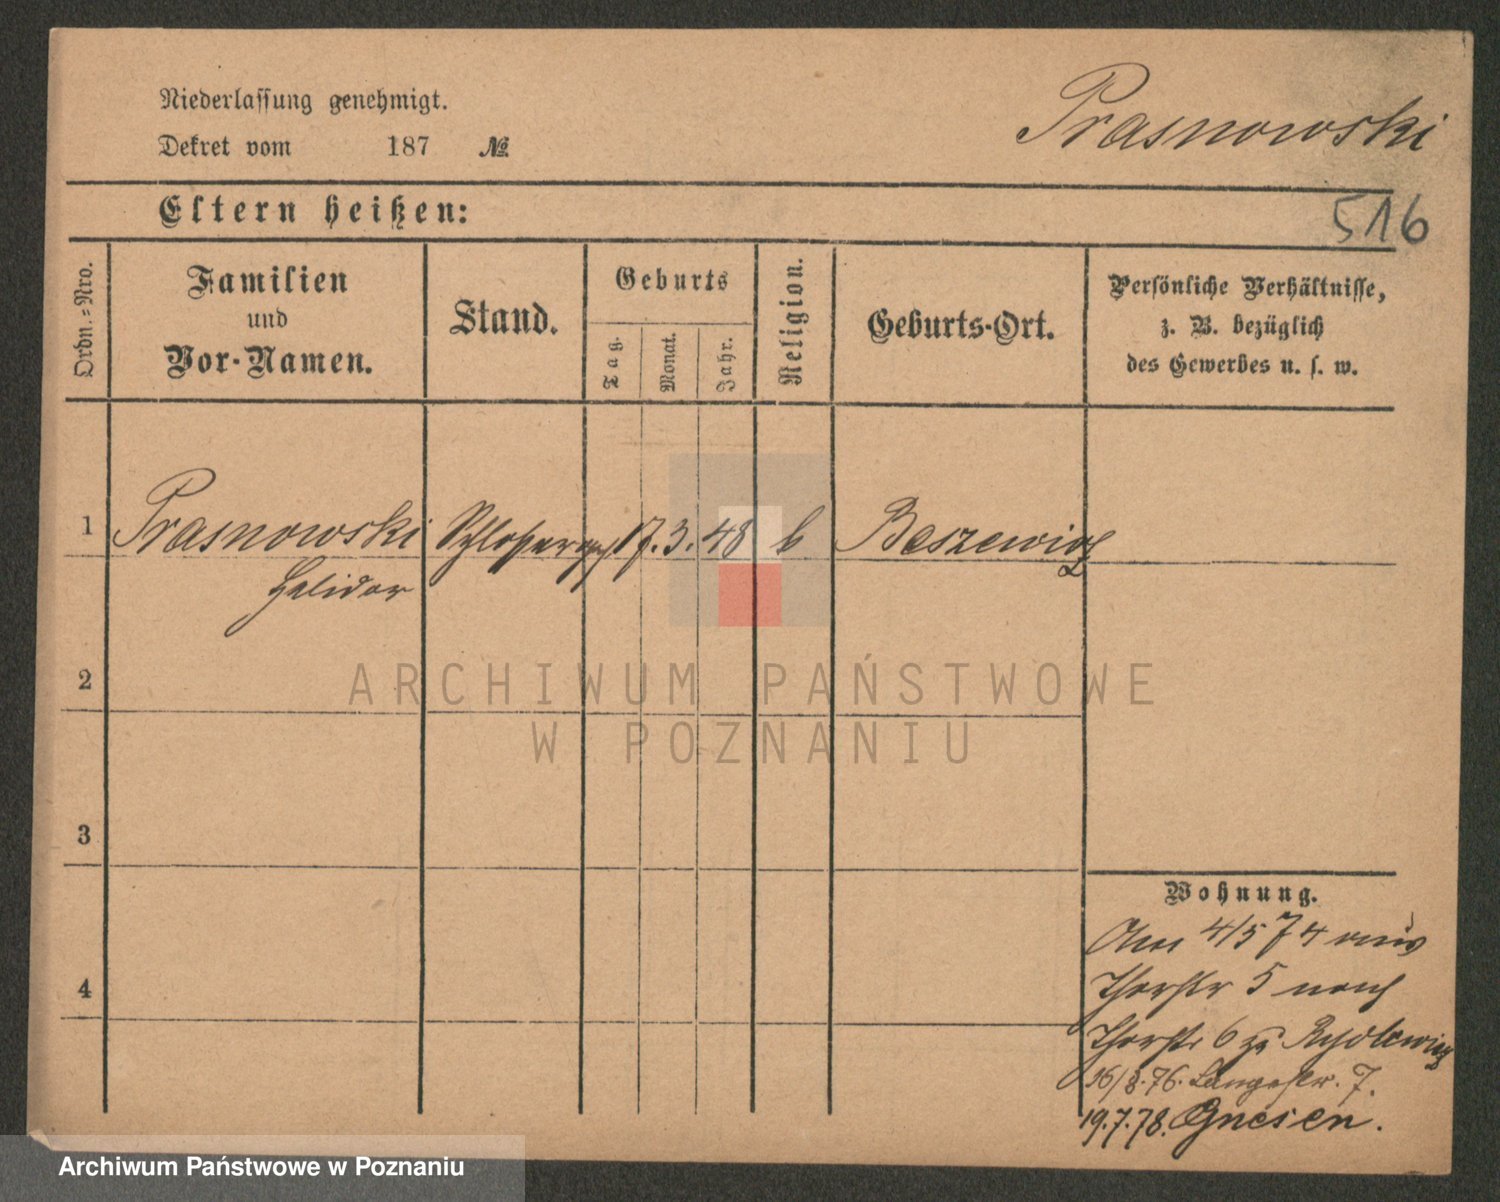 Niederlassung genehmigt.
Dekret vom 187 №
Prasnowski
Eltern heißen:
516
Ordn.=Nro.
Familien
und
Vor-Namen.
Stand.
Geburts
Tag.
Monat.
Jahr.
Religion.
Geburts-Ort.
Persönliche Verhältnisse,
z. B. bezüglich
des Gewerbes u. s. w.
1 Prasnowski 17. 3. 48
2
3
4
Wohnung.
Am 4/5 74 aus
Thorstr 5 nach
Thorstr 6 zu
76. Langestr. 7.
19.7.78. Gnesen.
ARCHIWUM PAŃSTWOWE
W POZNANIU
Archiwum Państwowe w Poznaniu